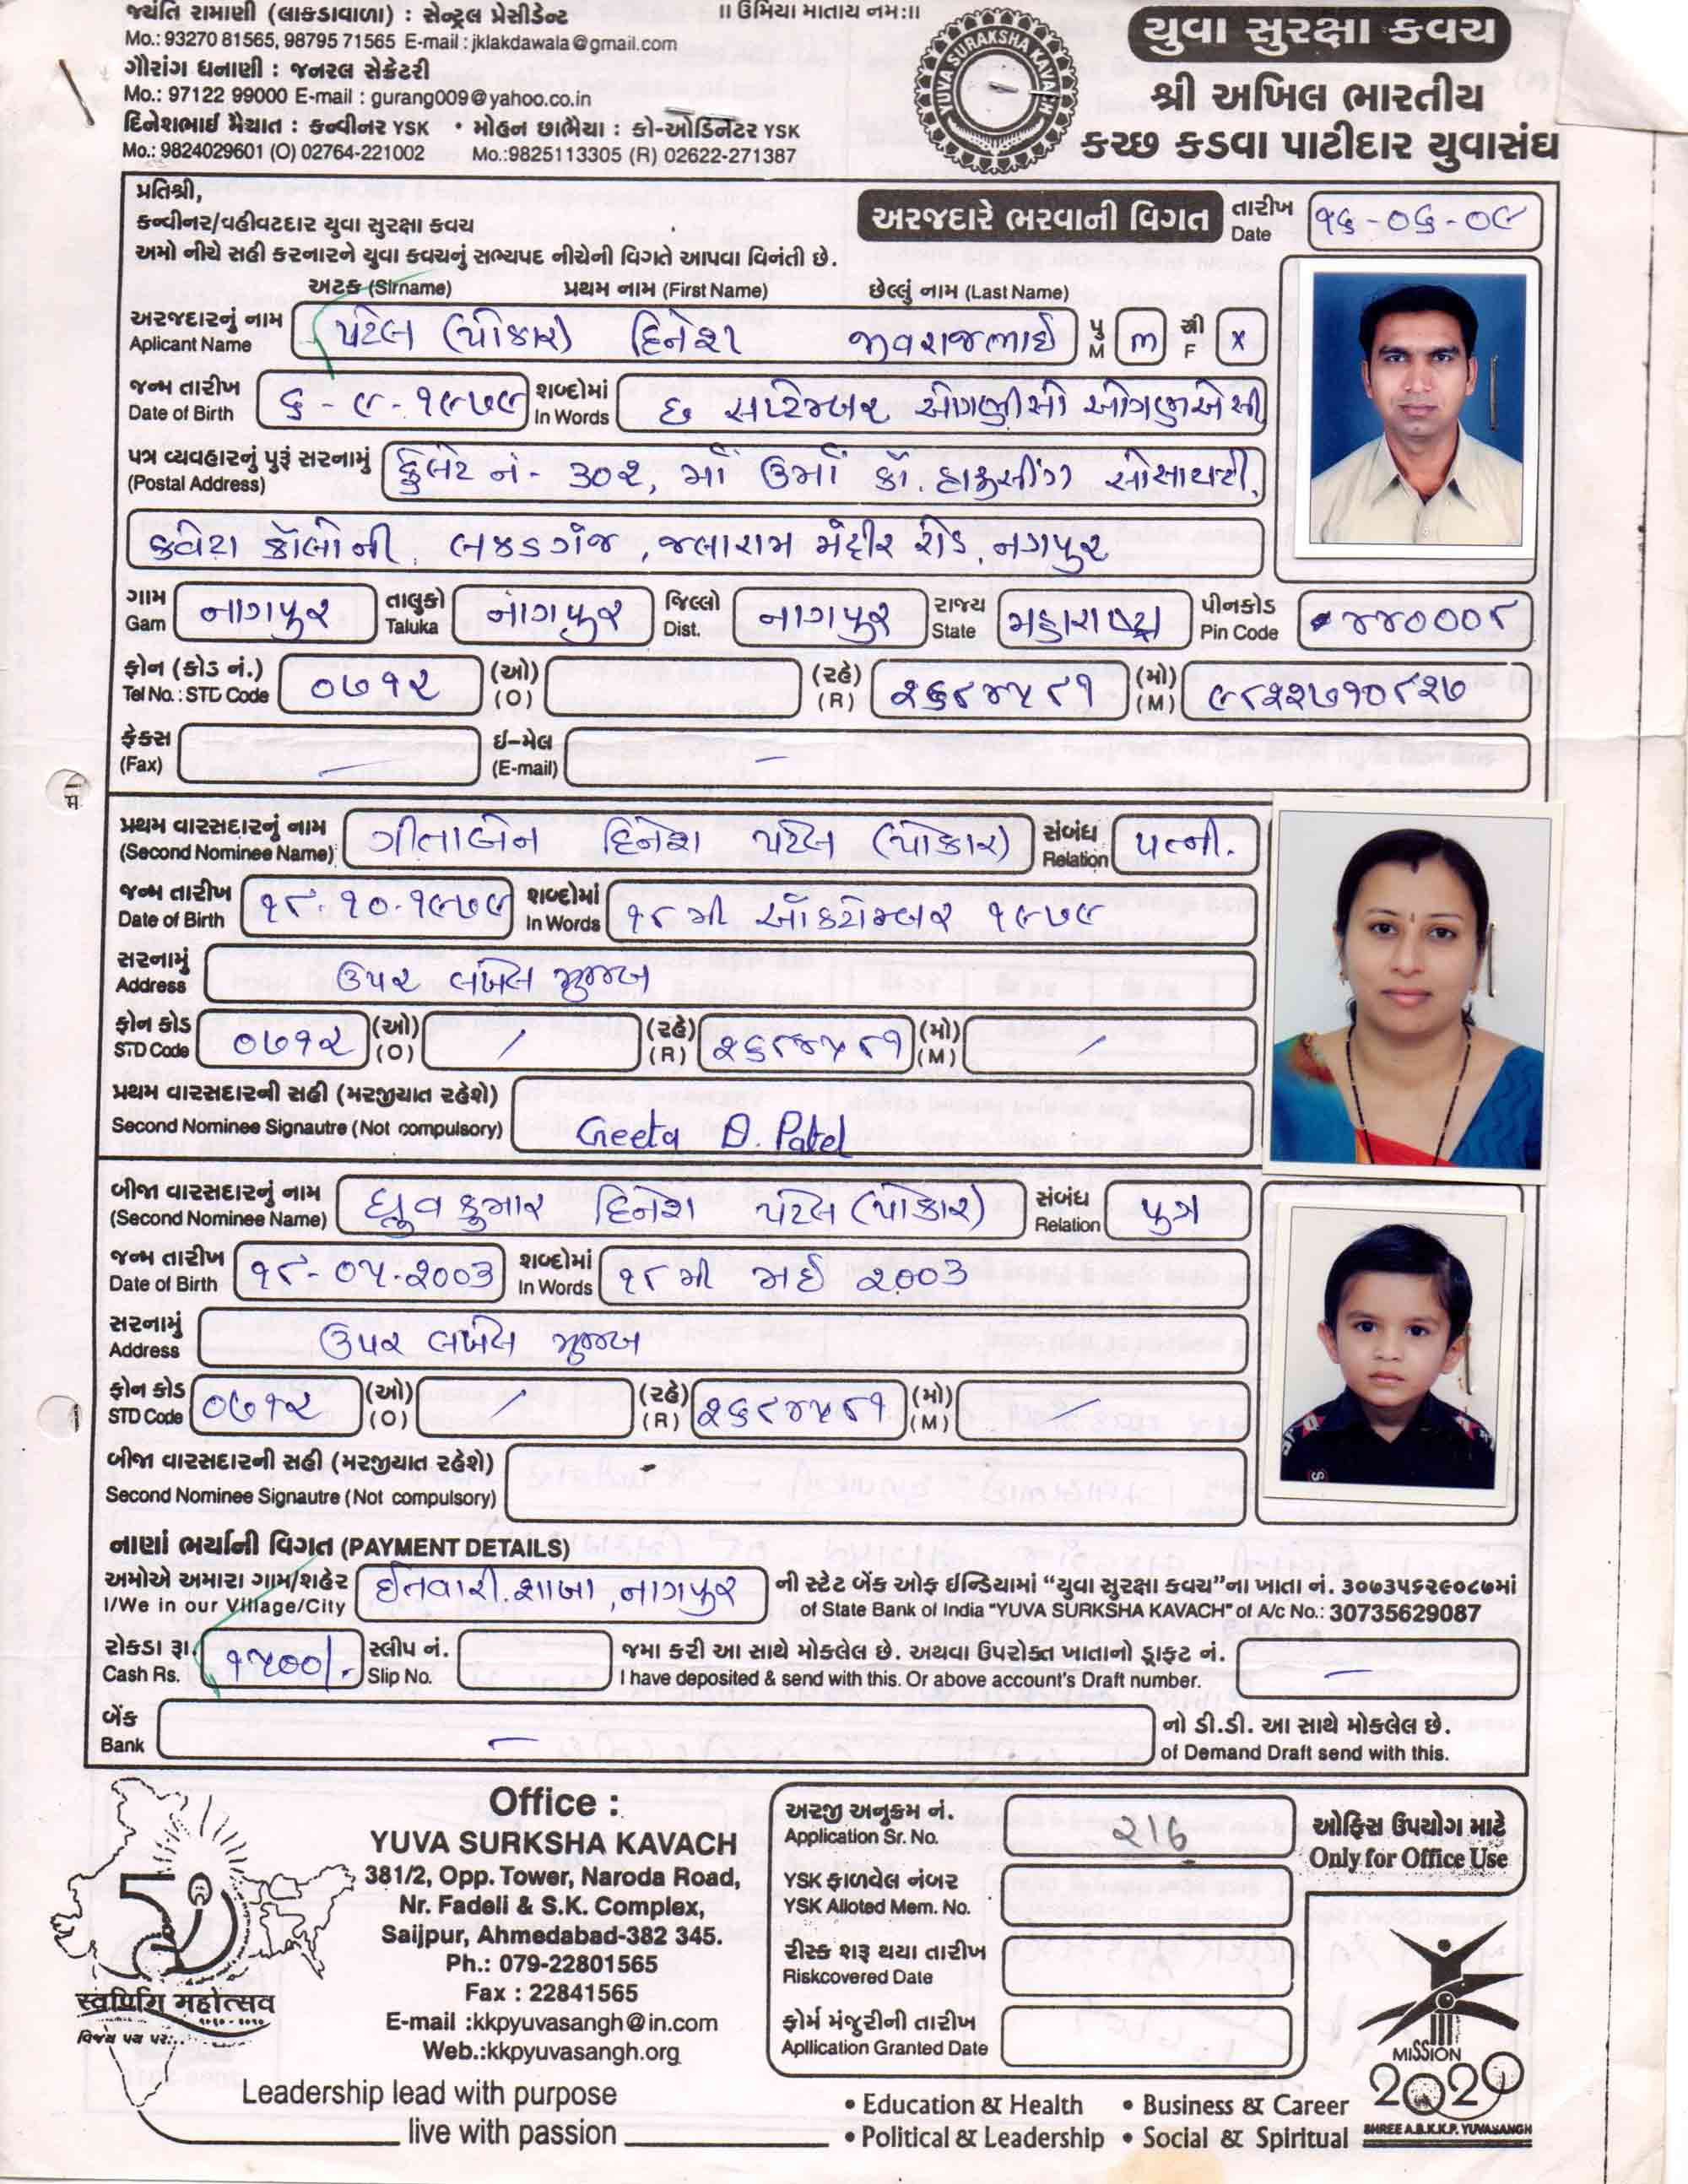 જયંતિ રામાણી (લાકડાવાળા) : સેન્ટ્રલ પ્રેસીડેન્ટ
Mo.: 93270 81565, 98795 71565 E-mail : jklakdawala@gmail.com
ગૌરાંગ ધનાણી : જનરલ સેક્રેટરી
Mo.: 97122 99000 E-mail : gurang009@yahoo.co.in
દિનેશભાઈ મૈયાત : કન્વીનર YSK • મોહન છાભૈયા : કો-ઓર્ડિનેટર YSK
Mo.: 9824029601 (O) 02764-221002 Mo.:9825113305 (R) 02622-271387
॥ ઉમિયા માતાય નમઃ॥
YUVA SURAKSHA KAVACH
યુવા સુરક્ષા કવચ
શ્રી અખિલ ભારતીય
કચ્છ કડવા પાટીદાર યુવાસંઘ
પ્રતિશ્રી,
કન્વીનર/વહીવટદાર યુવા સુરક્ષા કવચ
અરજદારે ભરવાની વિગત તારીખ Date ૧૬-૦૬-૦૯
અમો નીચે સહી કરનારને યુવા કવચનું સભ્યપદ નીચેની વિગતે આપવા વિનંતી છે.
અટક (Sirname) પ્રથમ નામ (First Name) છેલ્લું નામ (Last Name)
અરજદારનું નામ Aplicant Name પટેલ (પોકાર) દિનેશ જીવરાજભાઈ પુ M m સ્ત્રી F x
જન્મ તારીખ Date of Birth ૬-૯-૧૯૭૯ શબ્દોમાં In Words છ સપ્ટેમ્બર ઓગણીસો ઓગણાએસી
પત્ર વ્યવહારનું પુરૂં સરનામું (Postal Address) ફ્લેટ નં- ૩૦૨, માઁ ઉમાઁ કૉ. હાઉસીંગ સોસાયટી,
ક્વેટા કૉલોની, લકડગંજ, જલારામ મંદીર રોડ, નાગપુર
ગામ Gam નાગપુર તાલુકો Taluka નાગપુર જિલ્લો Dist. નાગપુર રાજ્ય State મહારાષ્ટ્ર પીનકોડ Pin Code ૪૪૦૦૦૮
ફોન (કોડ નં.) Tel No. : STD Code ૦૭૧૨ (ઓ) (O) (રહે) (R) ૨૬૮૪૫૮૧ (મો) (M) ૯૮૨૨૭૧૦૮૨૭
ફેક્સ (Fax) — ઈ-મેલ (E-mail) —
પ્રથમ વારસદારનું નામ (Second Nominee Name) ગીતાબેન દિનેશ પટેલ (પોકાર) સંબંધ Relation પત્ની.
જન્મ તારીખ Date of Birth ૧૮-૧૦-૧૯૭૯ શબ્દોમાં In Words ૧૮ મી ઑક્ટોમ્બર ૧૯૭૯
સરનામું Address ઉપર લખેલ મુજબ
ફોન કોડ STD Code ૦૭૧૨ (ઓ) (O) / (રહે) (R) ૨૬૮૪૫૮૧ (મો) (M) /
પ્રથમ વારસદારની સહી (મરજીયાત રહેશે)
Second Nominee Signautre (Not compulsory) Geeta D. Patel
બીજા વારસદારનું નામ (Second Nominee Name) ધ્રુવકુમાર દિનેશ પટેલ (પોકાર) સંબંધ Relation પુત્ર
જન્મ તારીખ Date of Birth ૧૮-૦૫-૨૦૦૩ શબ્દોમાં In Words ૧૮ મી મઈ ૨૦૦૩
સરનામું Address ઉપર લખેલ મુજબ
ફોન કોડ STD Code ૦૭૧૨ (ઓ) (O) / (રહે) (R) ૨૬૮૪૫૮૧ (મો) (M) /
બીજા વારસદારની સહી (મરજીયાત રહેશે)
Second Nominee Signautre (Not compulsory) -
નાણાં ભર્યાની વિગત (PAYMENT DETAILS)
અમોએ અમારા ગામ/શહેર ઈતવારી.શાખા,નાગપુર ની સ્ટેટ બેંક ઓફ ઈન્ડિયામાં “યુવા સુરક્ષા કવચ”ના ખાતા નં. ૩૦૭૩૫૬૨૯૦૮૭માં
I/We in our Village/City of State Bank of India "YUVA SURKSHA KAVACH" of A/c No.: 30735629087
રોકડા રૂા. ૧૫૦૦/- સ્લીપ નં. જમા કરી આ સાથે મોકલેલ છે. અથવા ઉપરોક્ત ખાતાનો ડ્રાફ્ટ નં. —
Cash Rs. Slip No. I have deposited & send with this. Or above account's Draft number.
બેંક — નો ડી.ડી. આ સાથે મોકલેલ છે.
Bank of Demand Draft send with this.
Office :
YUVA SURKSHA KAVACH
381/2, Opp. Tower, Naroda Road,
Nr. Fadeli & S.K. Complex,
Saijpur, Ahmedabad-382 345.
Ph.: 079-22801565
Fax : 22841565
E-mail :kkpyuvasangh@in.com
Web.:kkpyuvasangh.org
स्वर्णिम महोत्सव
વિજય પથ પર...
Leadership lead with purpose
live with passion
અરજી અનુક્રમ નં.
Application Sr. No. 216
ઓફિસ ઉપયોગ માટે
Only for Office Use
YSK ફાળવેલ નંબર
YSK Alloted Mem. No.
રીસ્ક શરૂ થયા તારીખ
Riskcovered Date
ફોર્મ મંજુરીની તારીખ
Apllication Granted Date
MISSION
2020
SHREE A.B.K.K.P. YUVASANGH
• Education & Health • Business & Career
• Political & Leadership • Social & Spiritual